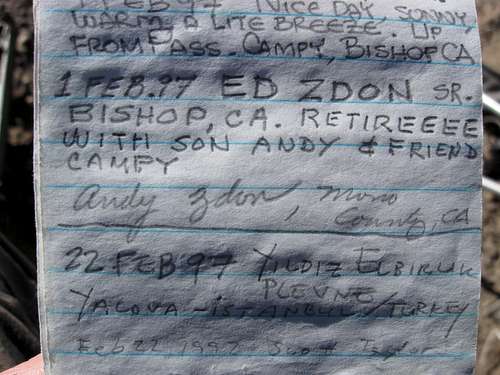 1 FEB 97 NICE DAY, SONNY,
WARM. A LITE BREEZE. UP
FROM PASS. CAMPY, BISHOP CA
1 FEB.97 ED ZDON SR.
BISHOP, CA. RETIREEEE
WITH SON ANDY & FRIEND
CAMPY
Andy Zdon, Mono
County, CA
22 FEB 97 YILDIZ
PLEVNE
YALOVA-ISTANBUL/TURKEY
Feb 22 1997 Scott Taylor